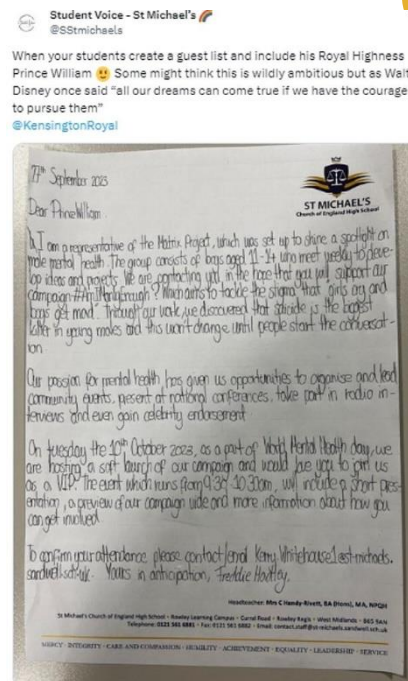 Student Voice - St Michael's 🌈
@SStmichaels
When your students create a guest list and include his Royal Highness
Prince William 🙂 Some might think this is wildly ambitious but as Walt
Disney once said "all our dreams can come true if we have the courage
to pursue them"
@KensingtonRoyal
ST MICHAEL'S
Church of England High School
September 2023
Dear Prince William,
I am a representative of the Matrix Project, which was set up to shine a spotlight on
male mental health. The group consists of boys aged 11-14 who meet weekly to deve-
lop ideas and projects. We are contacting you in the hope that you will support our
campaign #AmIManEnough? Which aims to tackle the stigma that girls cry and
boys get mad. Through our work, we discovered that suicide is the biggest
killer in young males and this won't change until people start the conversat-
ion.
Our passion for mental health has given us opportunities to organise and lead
community events, present at national conferences, take part in radio in-
terviews and even gain celebrity endorsement
On tuesday the 10th October 2023, as a part of World Mental Health day, we
are hosting a soft launch of our campaign and would love you to join us
as a VIP. The event which runs from 9.30-10.30am, will include a short pres-
entation, a preview of our campaign video and more information about how you
can get involved.
To confirm your attendance please contact/email Kerry.Whitehouse1@st-michaels.
sandwell.sch.uk. Yours in anticipation, Freddie
Headteacher: Mrs C Handy-Rivett, BA (Hons), MA, NPQH
St Michael's Church of England High School - Rowley Learning Campus - Curral Road - Rowley Regis - West Midlands - B65 9AN
Telephone: 0121 561 6881 - Fax: 0121 561 6882 - Email: contact.staff@st-michaels.sandwell.sch.uk
MERCY - INTEGRITY - CARE AND COMPASSION - HUMILITY - ACHIEVEMENT - EQUALITY - LEADERSHIP - SERVICE